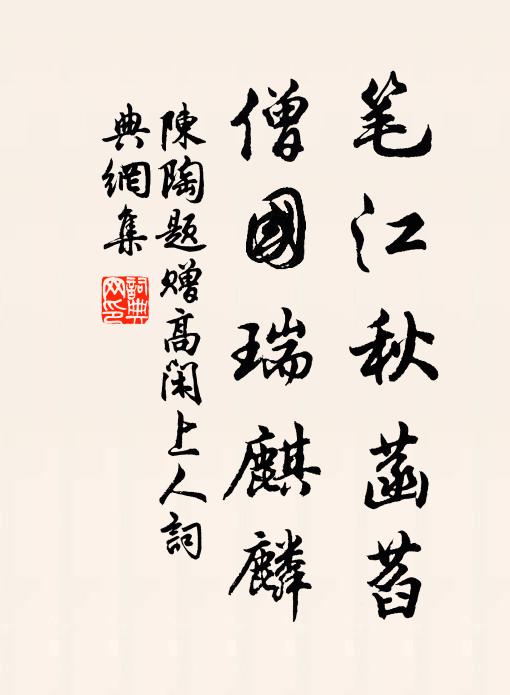 笔江秋菡萏
僧國瑞麒麟
陳陶題贈高閑上人詞
典網集
詞典網印